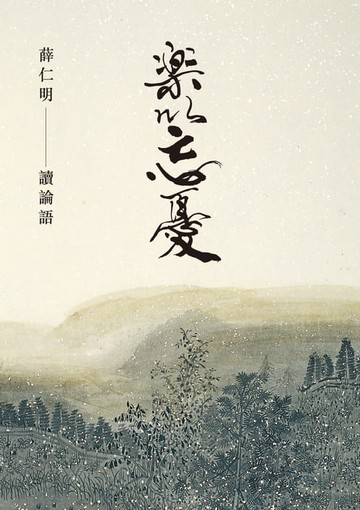 楽以忘憂
薛仁明——讀論語